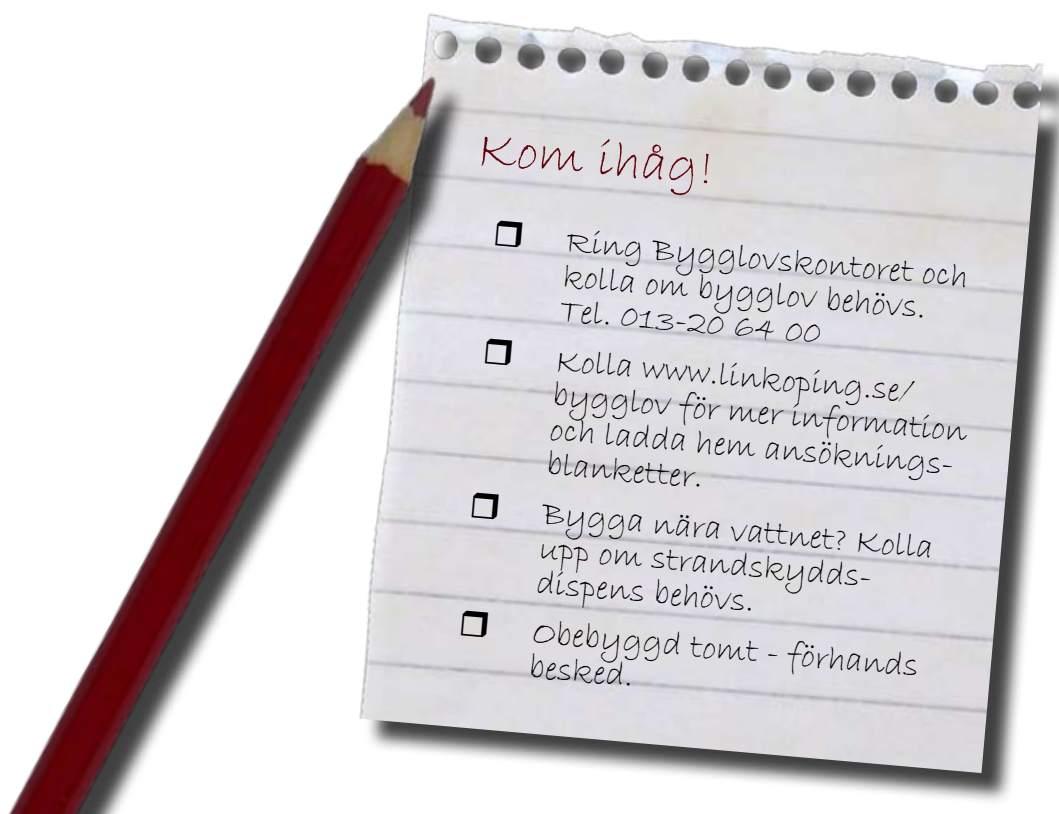 Kom ihåg!
Ring Bygglovskontoret och
kolla om bygglov behövs.
Tel. 013-20 64 00
Kolla www.linkoping.se/
bygglov för mer information
och ladda hem ansöknings-
blanketter.
Bygga nära vattnet? Kolla
upp om strandskydds-
dispens behövs.
Obebyggd tomt - förhands
besked.